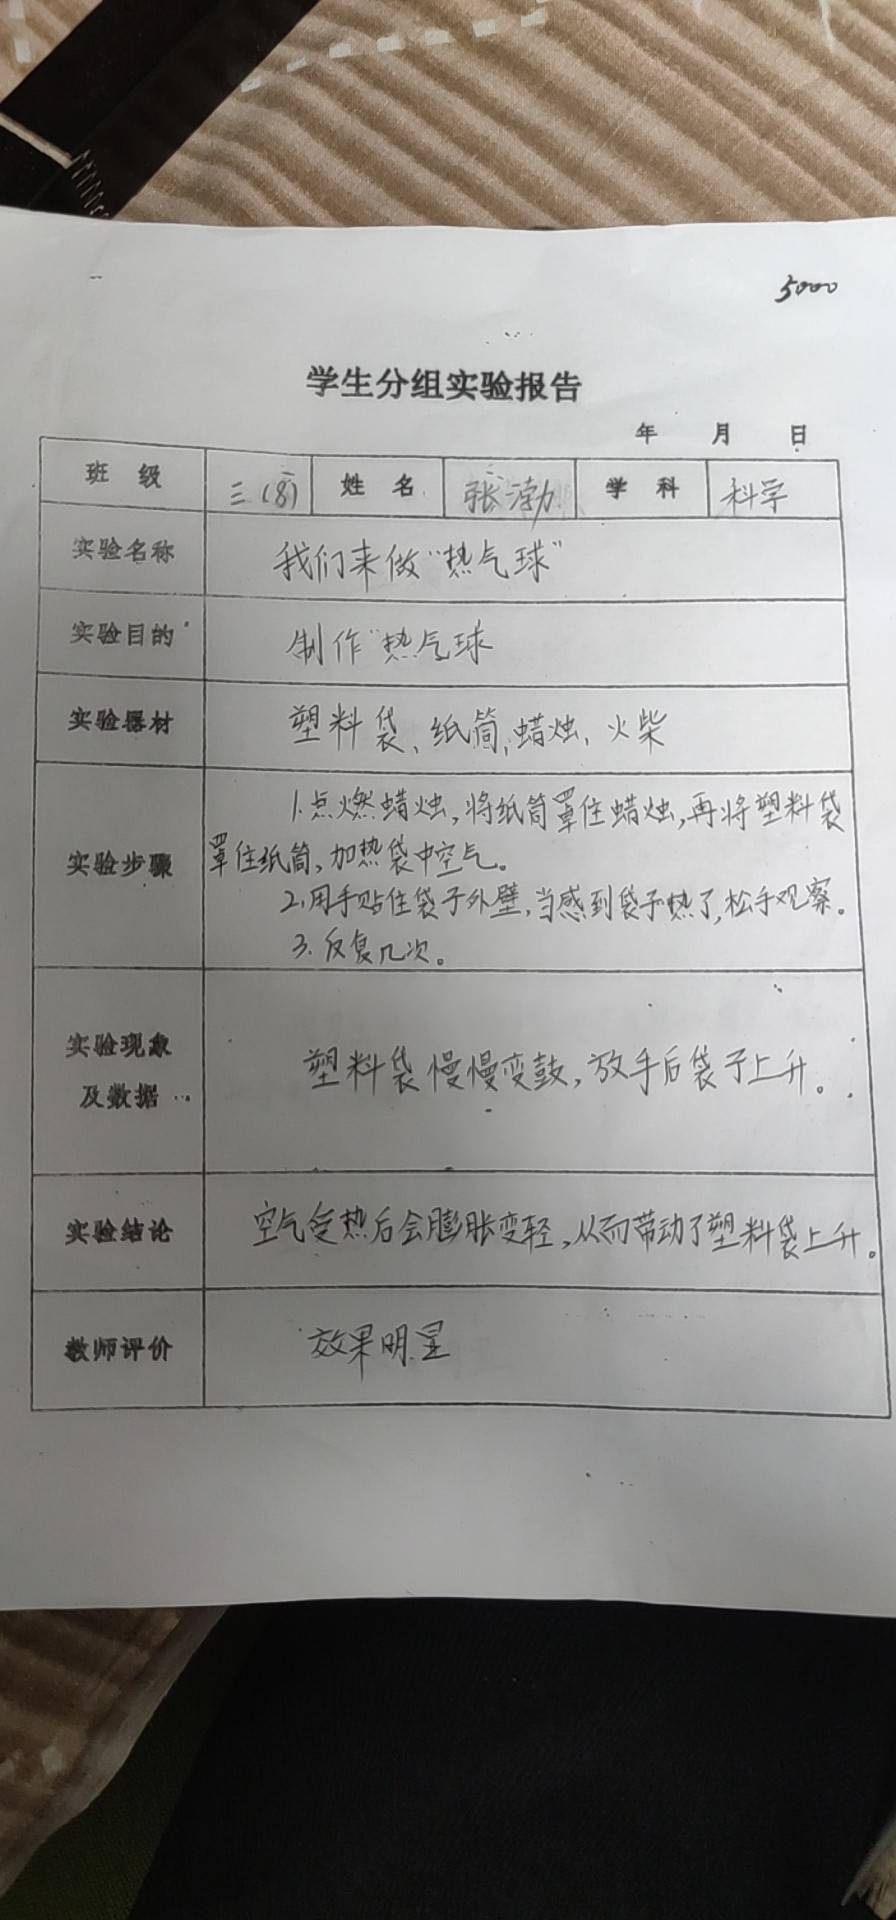 5000
学生分组实验报告
年 月 日
班 级 三(8) 姓 名 张渤 学 科 科学
实验名称 我们来做“热气球”
实验目的 制作“热气球
实验器材 塑料袋、纸筒,蜡烛,火柴
实验步骤
1.点燃蜡烛,将纸筒罩住蜡烛,再将塑料袋
罩住纸筒,加热袋中空气。
2.用手贴住袋子外壁,当感到袋子热了,松手观察。
3.反复几次。
实验现象
及数据
塑料袋慢慢变鼓,放手后袋子上升。
实验结论 空气受热后会膨胀变轻,从而带动了塑料袋上升。
教师评价 效果明显